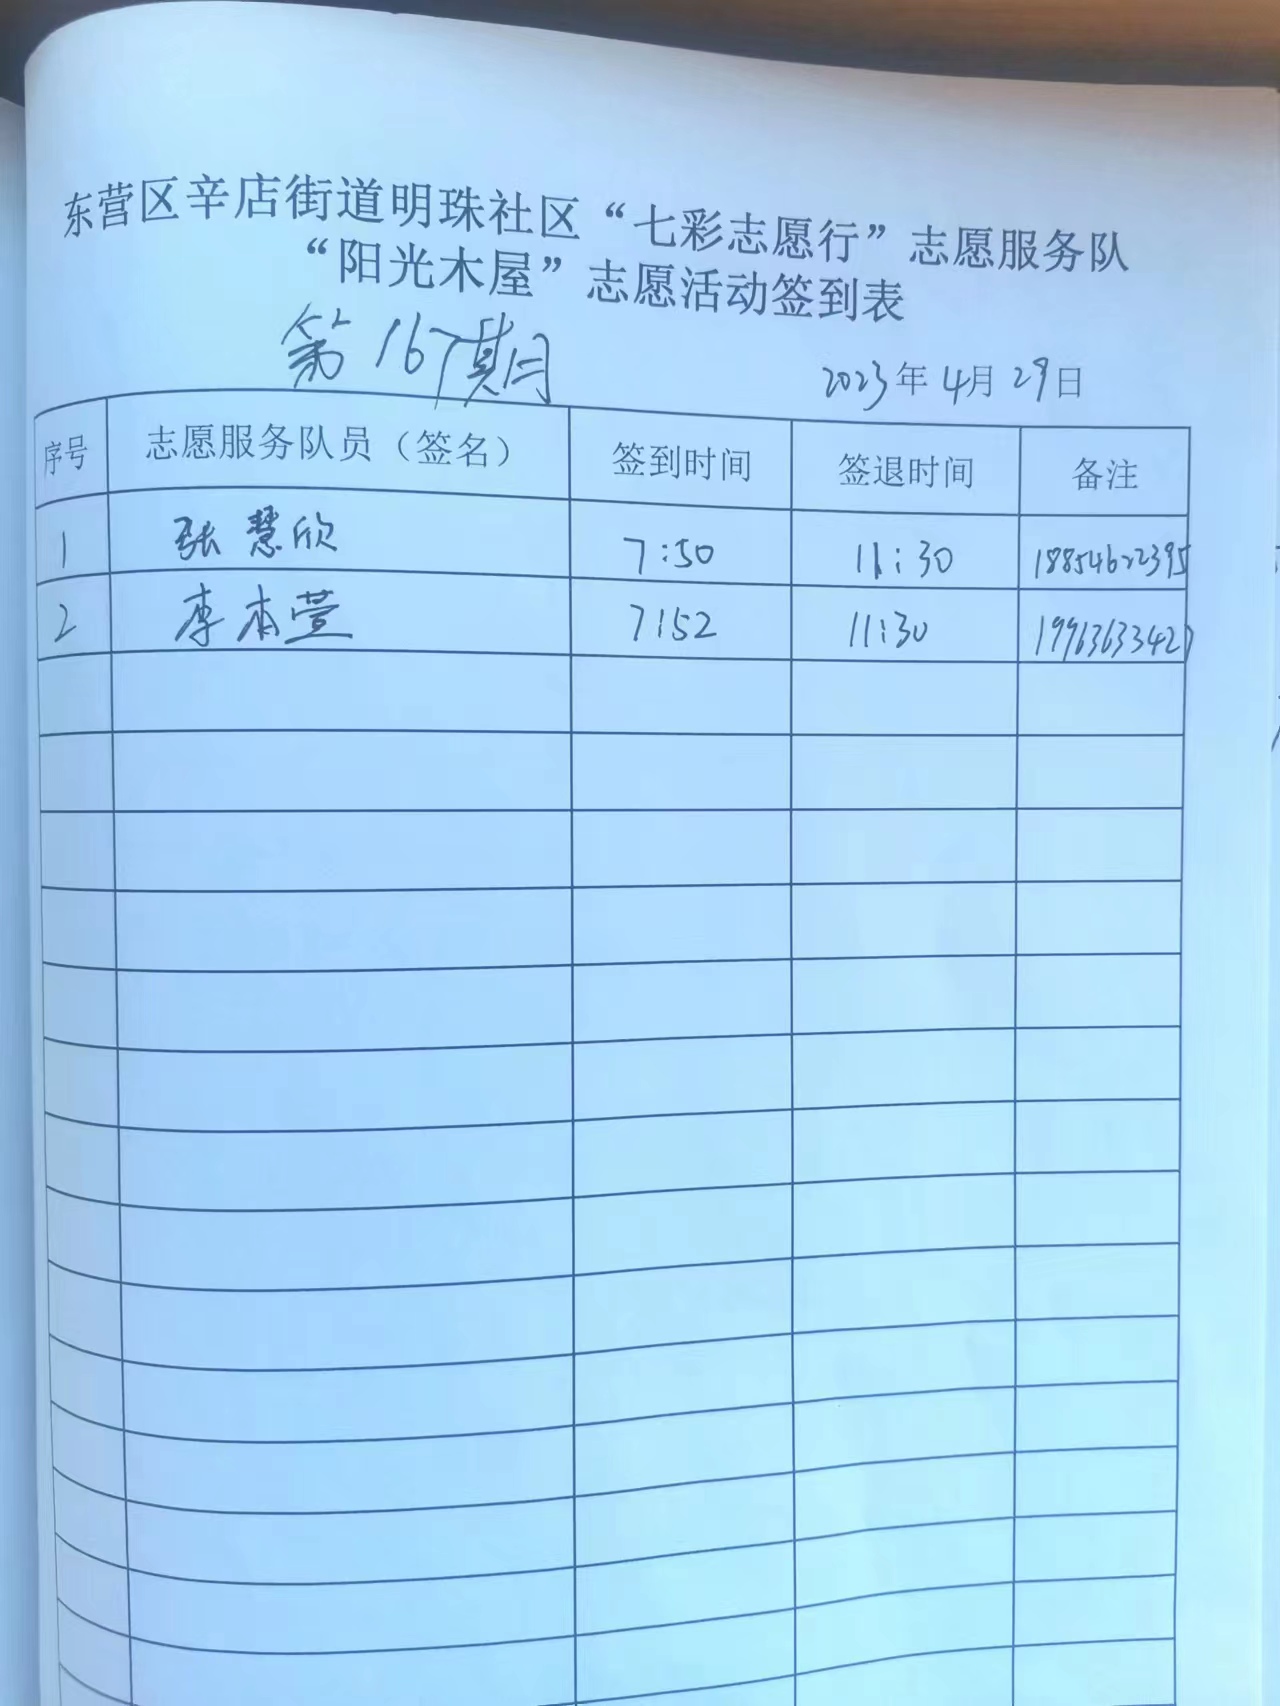 东营区辛店街道明珠社区“七彩志愿行”志愿服务队
“阳光木屋”志愿活动签到表
第167期
2023年4月29日
序号 志愿服务队员（签名） 签到时间 签退时间 备注
1 张慧欣 7:50 11:30 18854622395
2 李本萱 7:52 11:30 19963633427